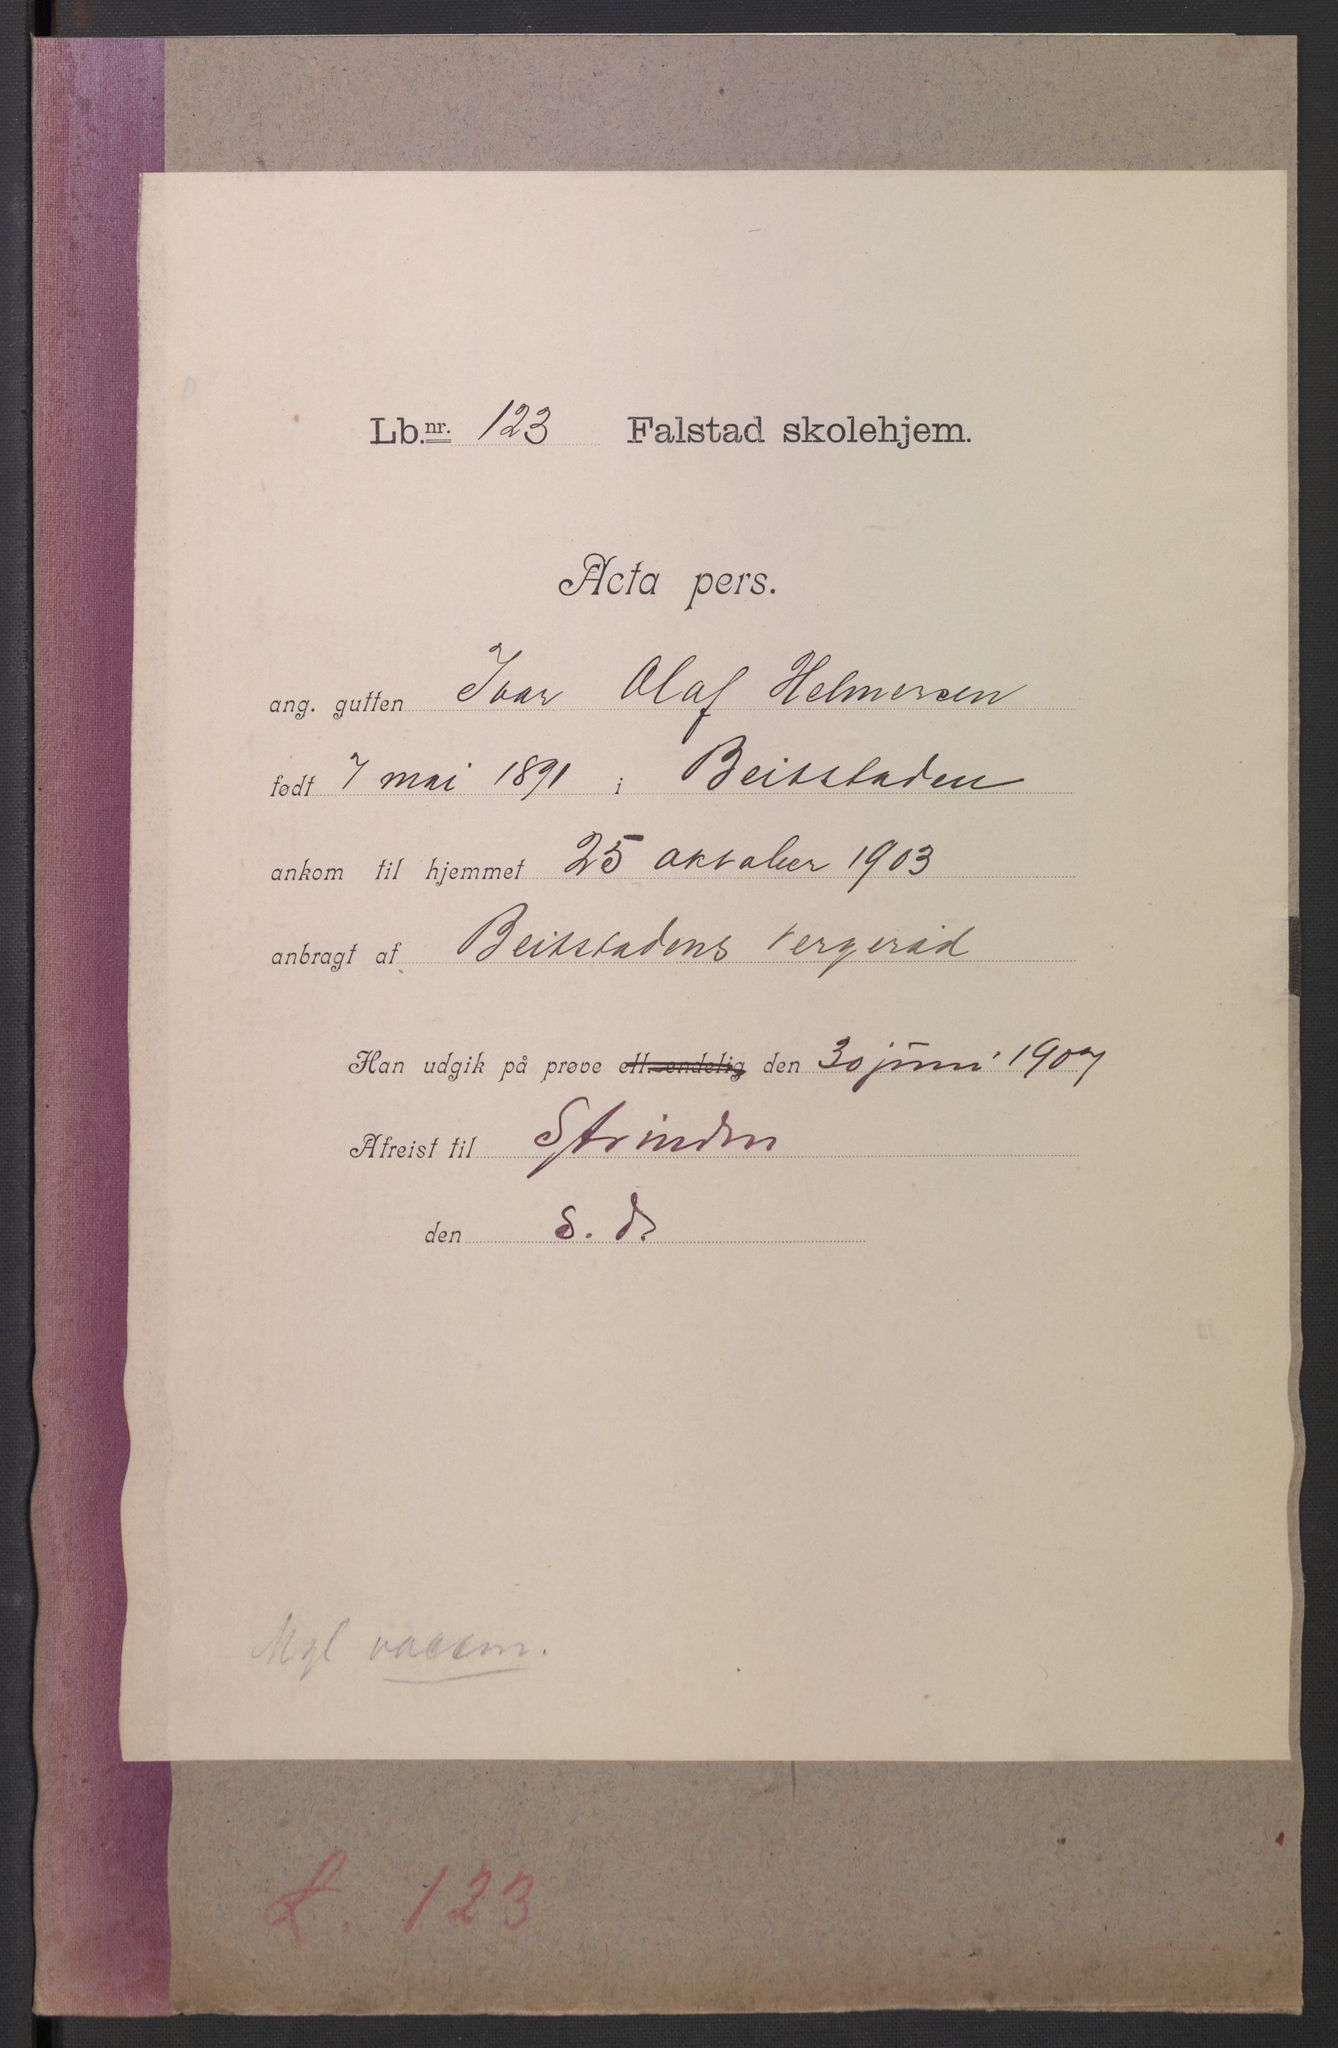 Lb.nr. 123 Falstad skolehjem.
Acta pers.
ang. gutten Ivar Olaf Helmersen
født 7 mai 1891 i Beitstaden
ankom til hjemmet 25 oktober 1903
anbragt af Beitstadens vergeråd
Han udgik på prøve ell. endelig den 30 juni 1907
Afreist til Strinden
den S. D.
Mgl vaccin.
L. 123